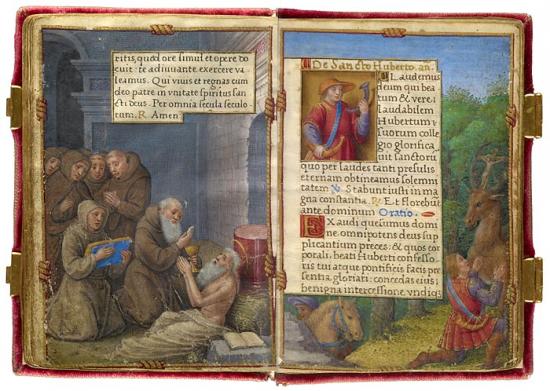 ritis, quod ore simul et opere do
cuit: te adiuuante exercere va
leamus. Qui viuis et regnas cum
deo patre in vnitate spiritus san
cti deus. Per omnia secula seculo
rum. R. Amen
De Sancto Huberto. an.
Laudemus
deum qui bea
tum & vere
laudabilem
Hubertum
suorum colle
gio glorifica
uit sanctoru
quo per laudes tanti presulis
eternam obtineamus solemni
tatem V. Stabunt iusti in ma
gna constantia. R. Et florebunt
ante dominum Oratio.
Exaudi quesumus domi
ne omnipotens deus sup
plicantium preces: & quos cor
porali beati Huberti confesso
ris tui atque pontificis facis pre
sentia gloriari: concedas eius
benigna intercessione vndiq;